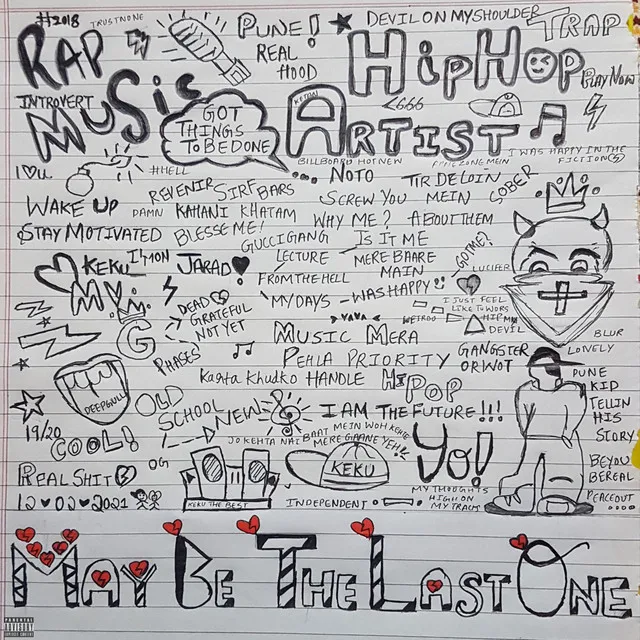 #2018
TRUST NONE
PUNE!
DEVIL ON MY SHOULDER
TRAP
RAP
REAL
HOOD
HIPHOP
PLAY NOW
INTROVERT
MUSIC
GOT
THINGS
TO BE DONE
KETAN
ARTIST
<666
I WAS HAPPY IN THE
FICTION(S)
BILLBOARD HOT NEW
I ♡ U
#HELL
... NOTO
TIR DE LOIN
SOBER
REVENIR
SIRF BARS
SCREW YOU
MEIN
WAKE UP
DAMN
KAHANI KHATAM
WHY ME?
ABOUT THEM
STAY MOTIVATED
BLESSE ME!
GUCCI GANG
IS IT ME
GOT ME?
I'M ON
LECTURE
MERE BAARE
MAIN
LUCIFER
KEKU
JARAD
FROM THE HELL
MY
DEAD
GRATEFUL
NOT YET
MY DAYS
WAS HAPPY
I JUST FEEL
LIKE TO WORS
G
VAVA
HIP MY
DEVIL
PHASES
MUSIC MERA
BLUR
LONELY
PEHLA PRIORITY
GANGSTER
OR WOT
DEEPGULLY
KARTA KHUDKO HANDLE
HIPOP
PUNE
KID
TELLIN
HIS
STORY
OLD
SCHOOL
NEW
I AM THE FUTURE!!!
19/20
COOL!
JO KEHTA NAI BAAT MEIN WOH KEHTE
MERE GAANE YEH
YO!
REAL SHIT
OG
KEKU
BE YOU
BE REAL
MY THOUGHTS
HIGH ON
MY TRACK
12♥02♥2021
KEKU THE BEST
INDEPENDENT
PEACE OUT
....
MAY BE THE LAST ONE
PARENTAL
ADVISORY
EXPLICIT CONTENT